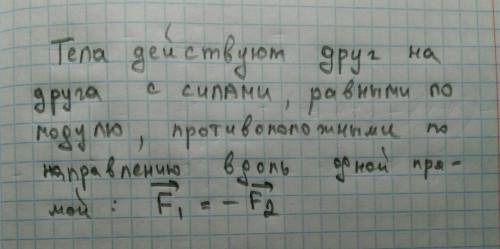 Тела действуют друг на
друга с силами, равными по
модулю, противоположными по
направлению вдоль одной пря-
мой: F₁ = - F₂